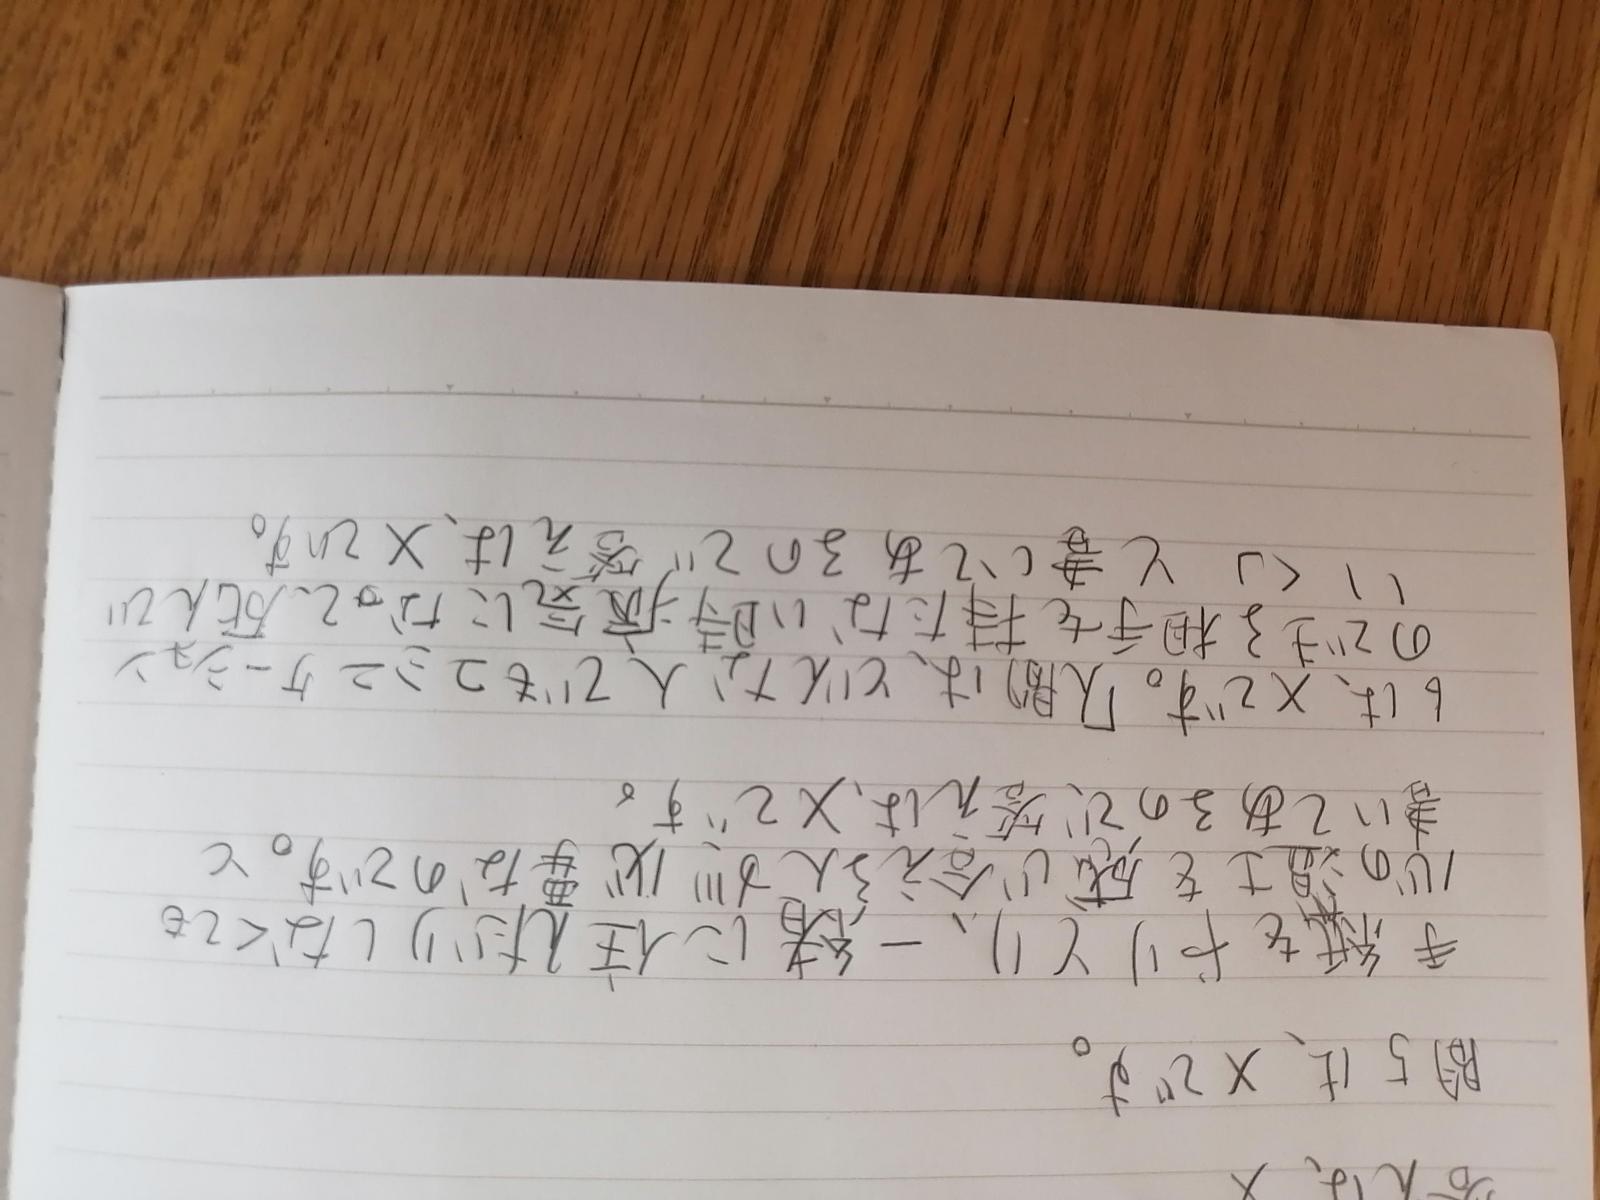 答えは、×
問5は、×です。
手紙をやりとり、一緒に住んだりしなくても
心の温土を感じ合える人が必要なのです。と
書いてあるので、答えは、×です。
6は、×です。「人間は、どんな人でもコミュニケーション
のできる相手を持たない時病気になって、死んで
いく」と書いてあるので答えは、×です。